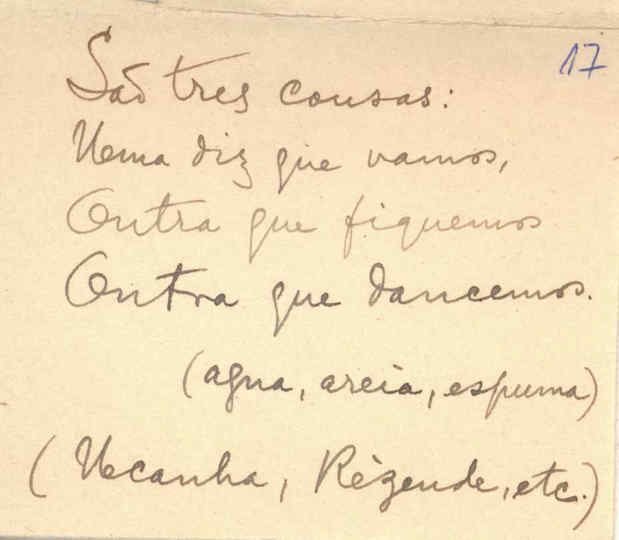 17
São tres cousas:
Uma diz que vamos,
Outra que fiquemos
Outra que dancemos.
(agua, areia, espuma)
(Ucanha, Rèzende, etc.)